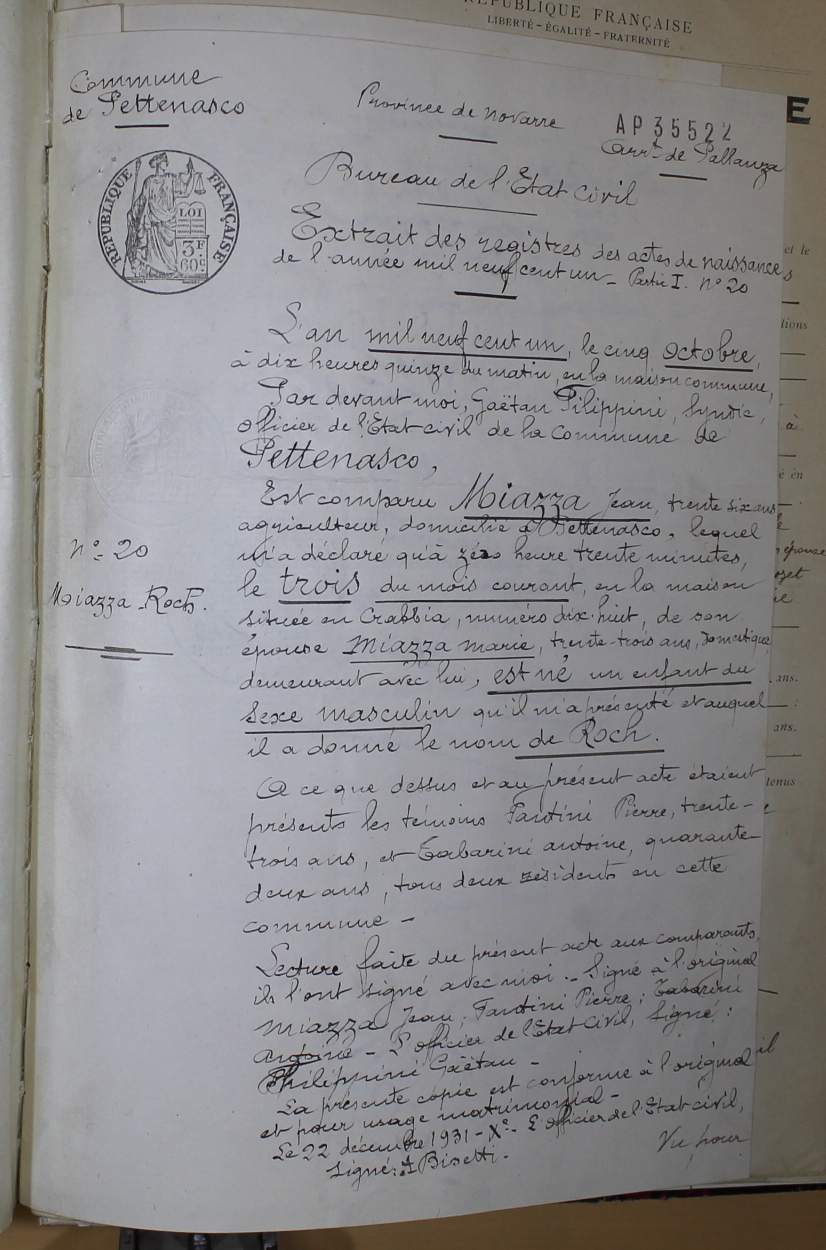 RÉPUBLIQUE FRANÇAISE
LIBERTÉ – ÉGALITÉ – FRATERNITÉ
Commune
de Pettenasco
Province de Novarre
AP 35522
Arr.t de Pallanza
RÉPUBLIQUE FRANÇAISE
LOI
3F
60c
Bureau de l'Etat Civil
Extrait des registres des actes de naissances
de l'année mil neuf cent un - Partie I. n° 20
L'an mil neuf cent un, le cinq octobre,
à dix heures quinze du matin, en la maison commune,
Par devant moi, Gaëtan Filippini, Syndic,
officier de l'Etat civil de la Commune de
Pettenasco,
Est comparu Miazza Jean, trente six ans
agriculteur, domicilié à Pettenasco, lequel
m'a déclaré qu'à zéro heure trente minutes,
le trois du mois courant, en la maison
située en Crabbia, numéro dix-huit, de son
épouse Miazza Marie, trente-trois ans, domestique
demeurant avec lui, est né un enfant du
sexe masculin qu'il m'a présenté et auquel
il a donné le nom de Roch.
n° 20
Miazza Roch.
A ce que dessus et au présent acte étaient
présents les témoins Fantini Pierre, trente-
trois ans, et Tabarini antoine, quarante-
deux ans, tous deux résidents en cette
commune -
Lecture faite du présent acte aux comparants,
ils l'ont signé avec moi. - Signé à l'original
Miazza Jean; Fantini Pierre; Tabarini
antoine - L'officier de l'Etat Civil, Signé:
Philippini Gaëtan -
La présente copie est conforme à l'original il
et pour usage matrimonial -
Le 22 décembre 1931 - X° - L'officier de l'Etat civil,
signé: A Bisetti.
Vu pour
E
et le
tions
à
e en
épouse
ans.
ans.
tenus